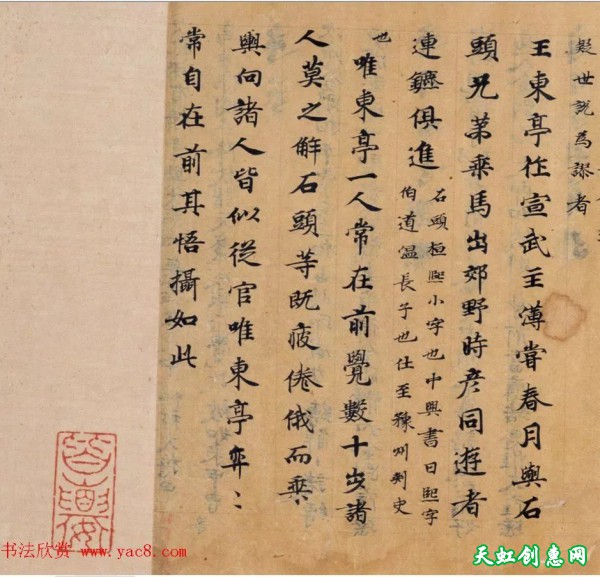 疑世説為謬者
王東亭作宣武主薄嘗春月與石
頭兄弟乘馬出郊野時彦同遊者
連鑣俱進
石頭桓熙小字也中興書曰熙字
伯道温長子也仕至豫州刺史
也
唯東亭一人常在前覺數十步諸
人莫之解石頭等既疲倦俄而乘
輿向諸人皆似從官唯東亭弈〻
常自在前其悟攝如此
书法欣赏 www.yac8.com
天虹创意网